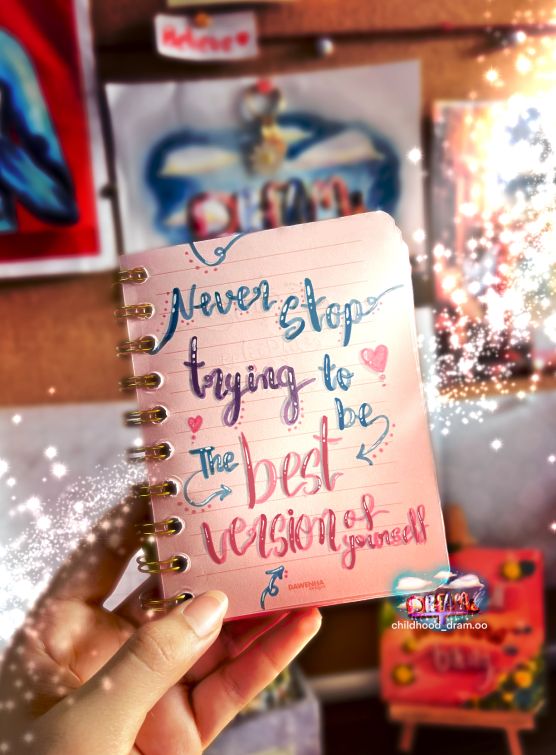 Believe
DREAM
Never stop
trying to
be
The best
version of
yourself
DAWENHA
DREAM
childhood_dram.oo